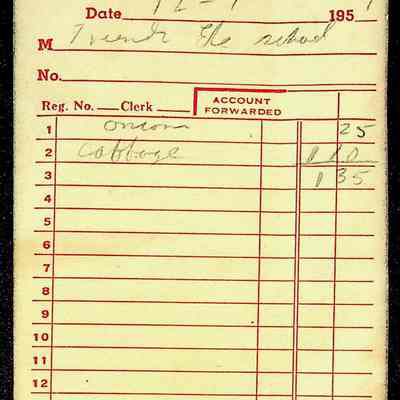 Date 12-1 195
M Friends the school
No.
Reg. No. Clerk ACCOUNT FORWARDED
1 onions 25
2 Cabbage 1 10
3 1 35
4
5
6
7
8
9
10
11
12